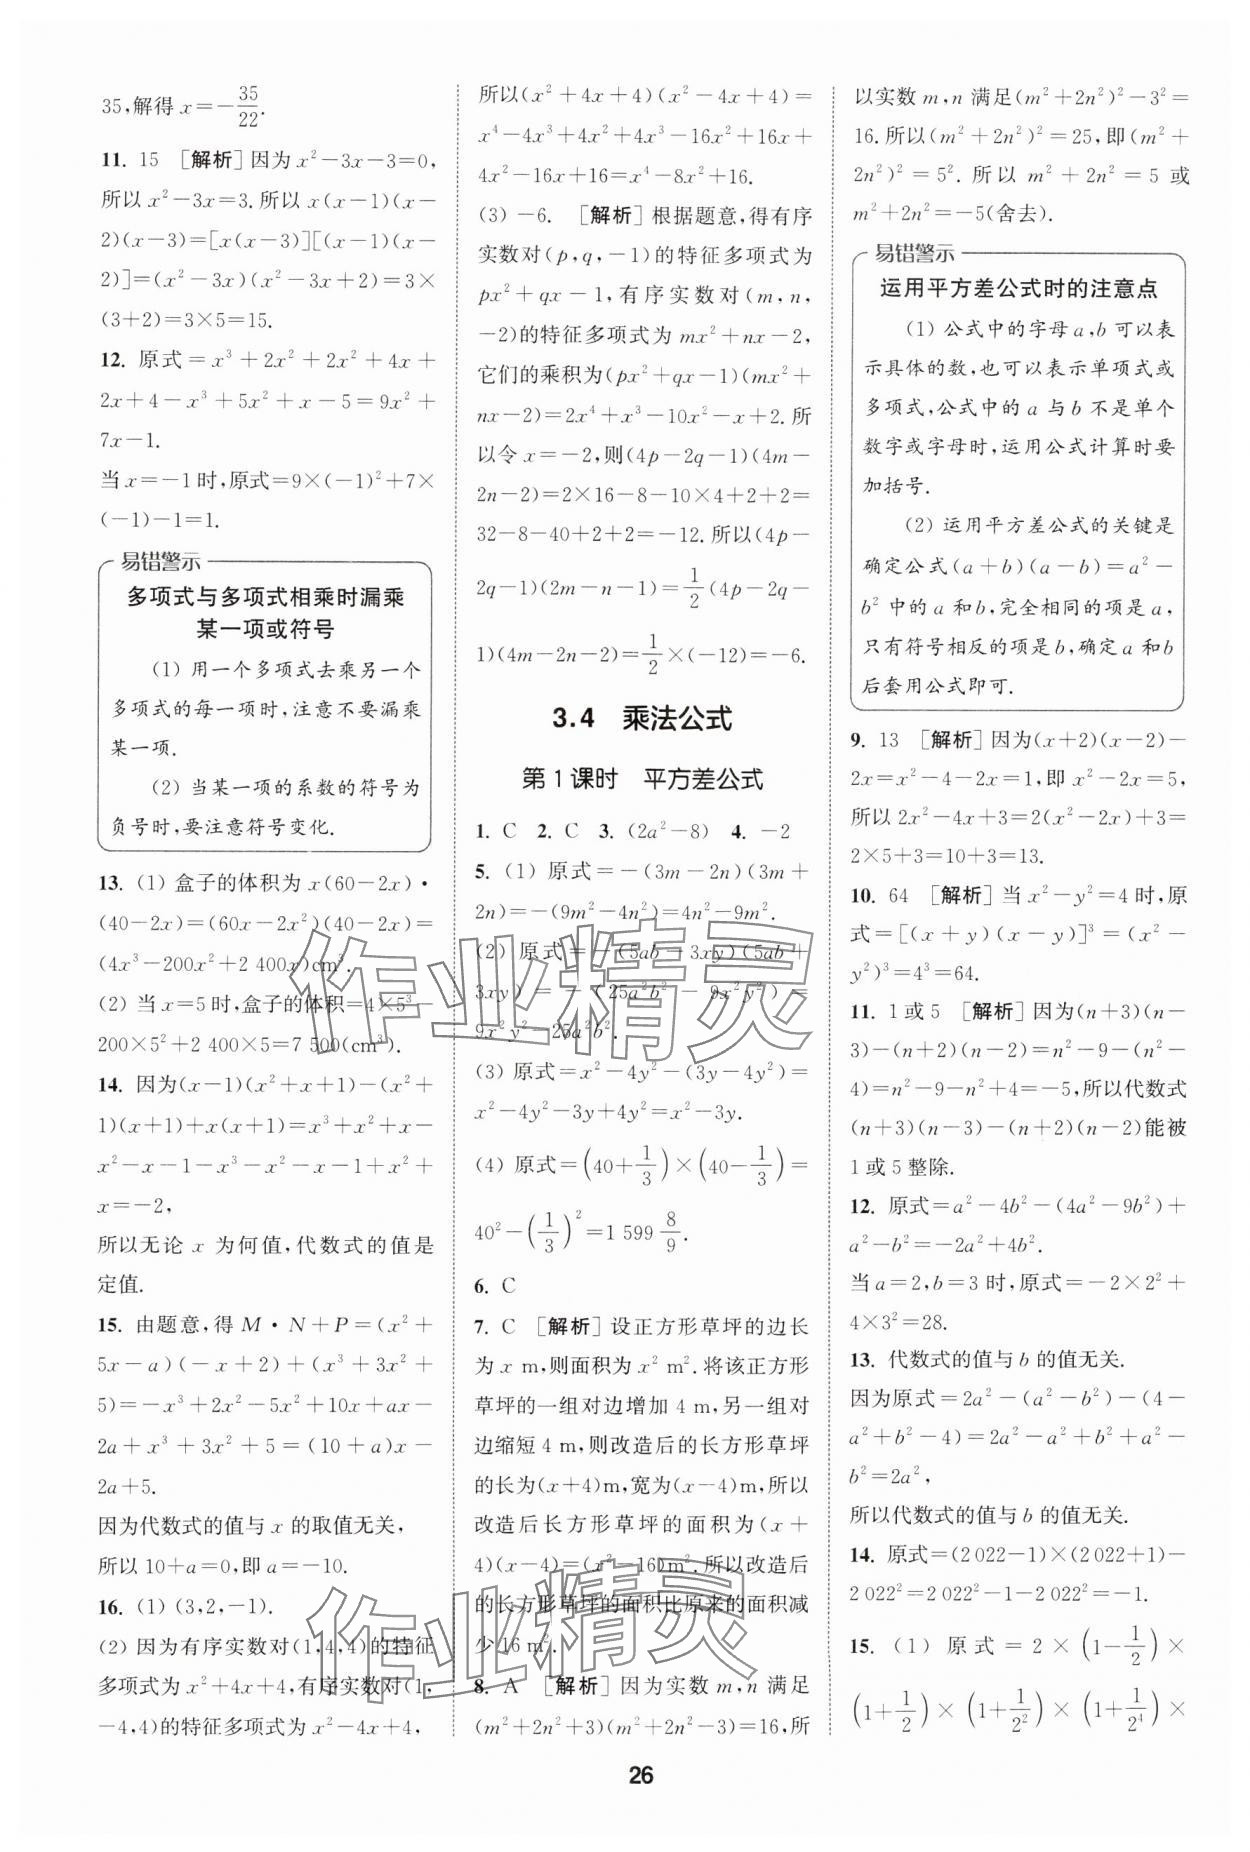 35,解得 x=-35/22.
11. 15 [解析]因为 x²-3x-3=0,
所以 x²-3x=3.所以 x(x-1)(x-
2)(x-3)=[x(x-3)][(x-1)(x-
2)]=(x²-3x)(x²-3x+2)=3×
(3+2)=3×5=15.
12. 原式=x³+2x²+2x²+4x+
2x+4-x³+5x²+x-5=9x²+
7x-1.
当 x=-1时,原式=9×(-1)²+7×
(-1)-1=1.
易错警示
多项式与多项式相乘时漏乘
某一项或符号
(1) 用一个多项式去乘另一个
多项式的每一项时,注意不要漏乘
某一项.
(2) 当某一项的系数的符号为
负号时,要注意符号变化.
13. (1) 盒子的体积为 x(60-2x)·
(40-2x)=(60x-2x²)(40-2x)=
(4x³-200x²+2 400x)cm³.
(2) 当 x=5时,盒子的体积=4×5³-
200×5²+2 400×5=7 500(cm³).
14. 因为(x-1)(x²+x+1)-(x²+
1)(x+1)+x(x+1)=x³+x²+x-
x²-x-1-x³-x²-x-1+x²+
x=-2,
所以无论 x 为何值,代数式的值是
定值.
15. 由题意,得 M·N+P=(x²+
5x-a)(-x+2)+(x³+3x²+
5)=-x³+2x²-5x²+10x+ax-
2a+x³+3x²+5=(10+a)x-
2a+5.
因为代数式的值与 x 的取值无关,
所以 10+a=0,即 a=-10.
16. (1) (3,2,-1).
(2) 因为有序实数对(1,4,4)的特征
多项式为 x²+4x+4,有序实数对(1,
-4,4)的特征多项式为 x²-4x+4,
所以(x²+4x+4)(x²-4x+4)=
x⁴-4x³+4x²+4x³-16x²+16x+
4x²-16x+16=x⁴-8x²+16.
(3) -6. [解析]根据题意,得有序
实数对(p,q,-1)的特征多项式为
px²+qx-1,有序实数对(m,n,
-2)的特征多项式为 mx²+nx-2,
它们的乘积为(px²+qx-1)(mx²+
nx-2)=2x⁴+x³-10x²-x+2.所
以令 x=-2,则(4p-2q-1)(4m-
2n-2)=2×16-8-10×4+2+2=
32-8-40+2+2=-12.所以(4p-
2q-1)(2m-n-1)=1/2(4p-2q-
1)(4m-2n-2)=1/2×(-12)=-6.
3.4 乘法公式
第1课时 平方差公式
1. C 2. C 3. (2a²-8) 4. -2
5. (1) 原式=-(3m-2n)(3m+
2n)=-(9m²-4n²)=4n²-9m².
(2) 原式=-(5ab+3xy)(5ab-
3xy)=-(25a²b²-9x²y²)=
9x²y²-25a²b².
(3) 原式=x²-4y²-(3y-4y²)=
x²-4y²-3y+4y²=x²-3y.
(4) 原式=(40+1/3)×(40-1/3)=
40²-(1/3)²=1 599 8/9.
6. C
7. C [解析]设正方形草坪的边长
为 x m,则面积为 x² m².将该正方形
草坪的一组对边增加 4 m,另一组对
边缩短 4 m,则改造后的长方形草坪
的长为(x+4)m,宽为(x-4)m,所以
改造后长方形草坪的面积为(x+
4)(x-4)=(x²-16)m².所以改造后
的长方形草坪的面积比原来的面积减
少 16 m².
8. A [解析]因为实数 m,n 满足
(m²+2n²+3)(m²+2n²-3)=16,所
以实数 m,n 满足(m²+2n²)²-3²=
16.所以(m²+2n²)²=25,即(m²+
2n²)²=5².所以 m²+2n²=5 或
m²+2n²=-5(舍去).
易错警示
运用平方差公式时的注意点
(1) 公式中的字母 a,b 可以表
示具体的数,也可以表示单项式或
多项式,公式中的 a 与 b 不是单个
数字或字母时,运用公式计算时要
加括号.
(2) 运用平方差公式的关键是
确定公式(a+b)(a-b)=a²-
b²中的 a 和 b,完全相同的项是 a,
只有符号相反的项是 b,确定 a 和 b
后套用公式即可.
9. 13 [解析]因为(x+2)(x-2)-
2x=x²-4-2x=1,即 x²-2x=5,
所以 2x²-4x+3=2(x²-2x)+3=
2×5+3=10+3=13.
10. 64 [解析]当 x²-y²=4时,原
式=[(x+y)(x-y)]³=(x²-
y²)³=4³=64.
11. 1或5 [解析]因为(n+3)(n-
3)-(n+2)(n-2)=n²-9-(n²-
4)=n²-9-n²+4=-5,所以代数式
(n+3)(n-3)-(n+2)(n-2)能被
1或5整除.
12. 原式=a²-4b²-(4a²-9b²)+
a²-b²=-2a²+4b².
当 a=2,b=3时,原式=-2×2²+
4×3²=28.
13. 代数式的值与 b 的值无关.
因为原式=2a²-(a²-b²)-(4-
a²+b²-4)=2a²-a²+b²+a²-
b²=2a²,
所以代数式的值与 b 的值无关.
14. 原式=(2 022-1)×(2 022+1)-
2 022²=2 022²-1-2 022²=-1.
15. (1) 原式=2×(1-1/2)×
(1+1/2)×(1+1/2²)×(1+1/2⁴)×
26
作业精灵
作业精灵